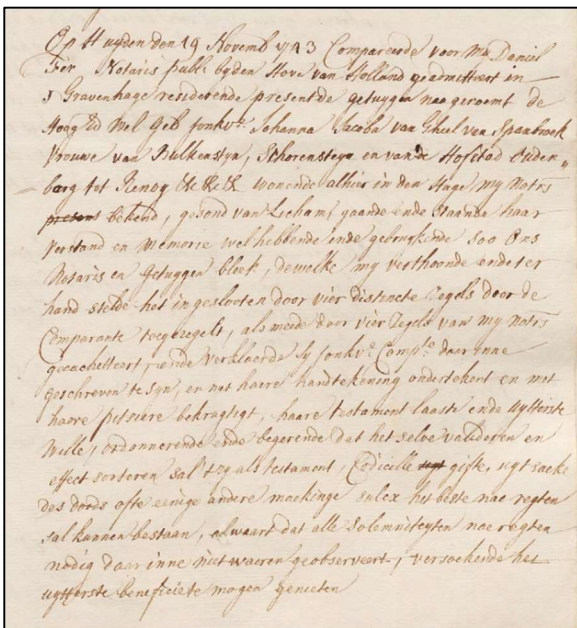 Op Huyden den 19 Novemb 1743 Compareerde voor My Daniel
Fer Notaris publ: byden Hove van Holland geadmitteert in
s Gravenhage residerende present de getuygen nae genoemt de
Hoog Ed Wel Geb Jonkvr. Johanna Jacoba van Ghul van Spanbroek
Vrouwe van Bulkensteyn, Schorensteyn en van de Hofstad Ouden„
barg tot Renoy &c &c &c wonende alhier in den Hage my Notrs
present bekend, gesond van Licham, gaande ende staande haar
Verstand en Memorie wel hebbende ende gebruykende soo Ons
Notaris en Getuygen bleek, dewelke my verthoonde ende ter
hand stelde het ingeslooten door vier distincte Zegels door de
Comparante toegezegelt, als meede door vier Zegels van my Notrs
gecachetteert, ende verklaerde Sy Jonkvr. Compte. daer inne
geschreven te syn, en met haere handtekening ondertekent en met
haere pitsiere bekragtigt, haare testament laaste ende uytterste
Wille, ordonnerende ende begerende dat het selve valideren en
effect sorteren sal 't zy als testament, Codicille gifte, uyt saeke
des doods ofte einige andere maekinge sulcx het beste nae regten
sal kunnen bestaan, alwaert dat alle solemniteyten nae regten
nodig daer inne niet waeren geobserveert, versoekende het
uytterste beneficie te mogen genieten